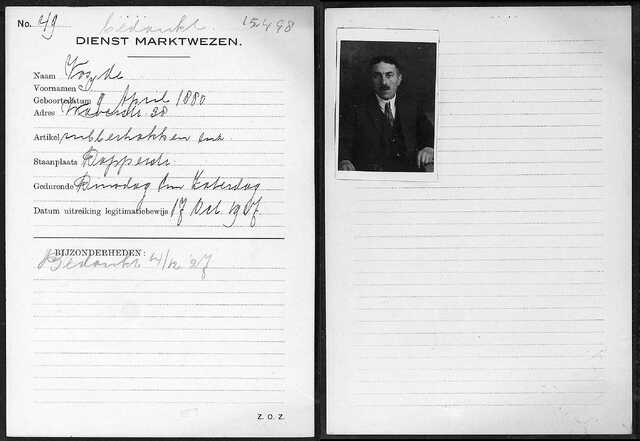 No. 49 bedankt. 15498
DIENST MARKTWEZEN.
Naam
Voornamen
Geboortedatum 9 April 1880
Adres 38
Artikel rubberhakken enz.
Staanplaats Dapperstr.
Gedurende Dinsdag t/m Zaterdag
Datum uitreiking legitimatiebewijs 17 Oct. 1927
BIJZONDERHEDEN:
Bedankt 4/12 '27
Z. O. Z.